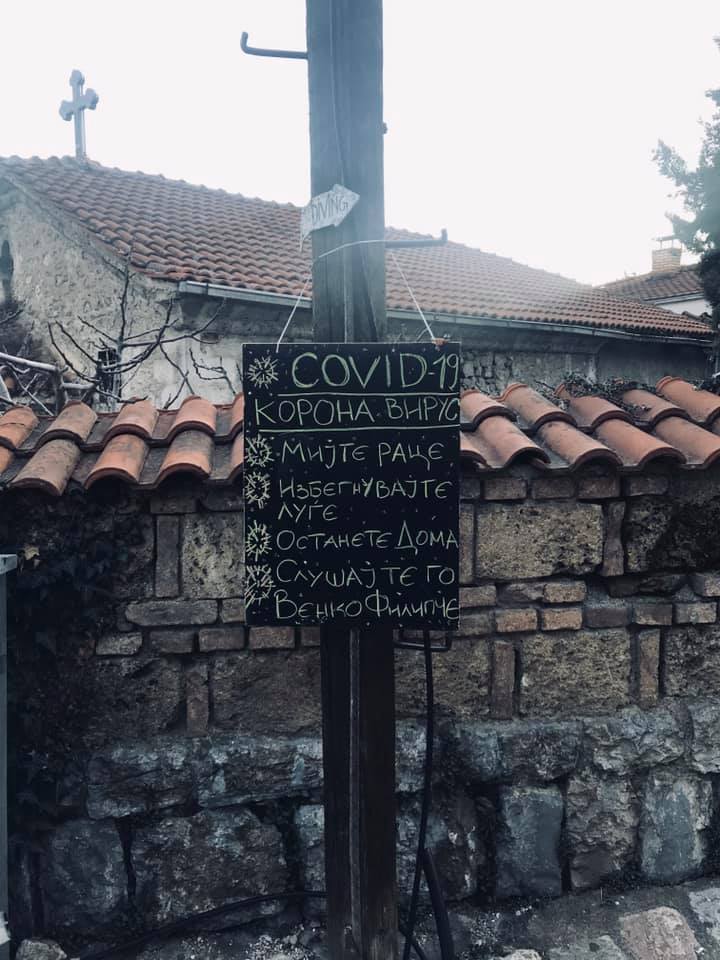 DIVING
COVID-19
КОРОНА ВИРУС
МИЈТЕ РАЦЕ
ИЗБЕГНУВАЈТЕ
ЛУЃЕ
ОСТАНЕТЕ ДОМА
СЛУШАЈТЕ ГО
ВЕНКО ФИЛИПЧЕ